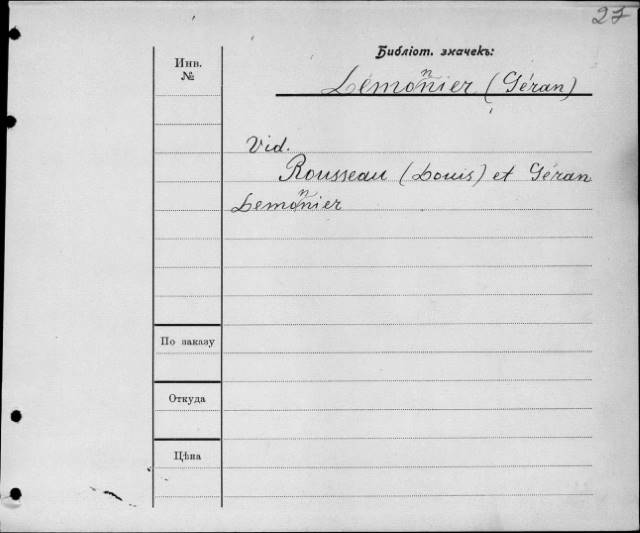 27
Библіот. значекъ:
Инв.
№
Lémonnier (Géran)
Vid.
Rousseau (Louis) et Géran
Lemonnier
По заказу
Откуда
Цѣна